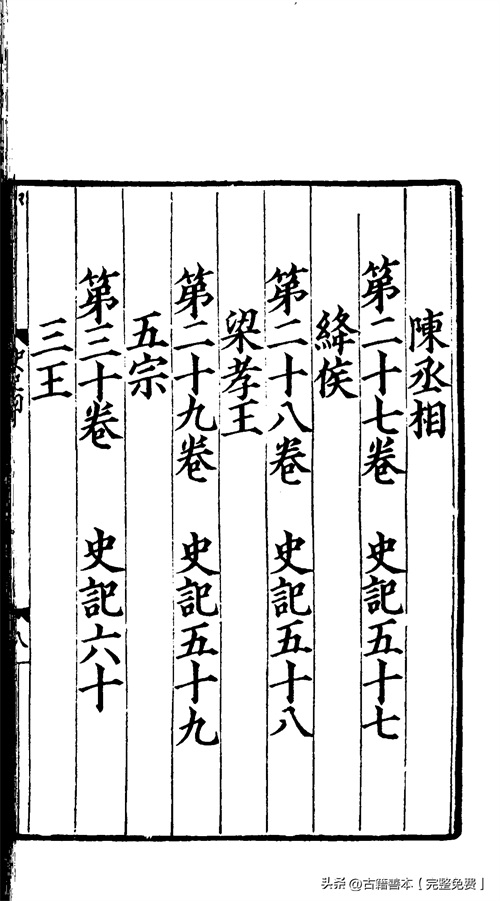 陳丞相
第二十七卷　史記五十七
絳侯
第二十八卷　史記五十八
梁孝王
第二十九卷　史記五十九
五宗
第三十卷　史記六十
三王
八
头条 @古籍善本【完整免费】